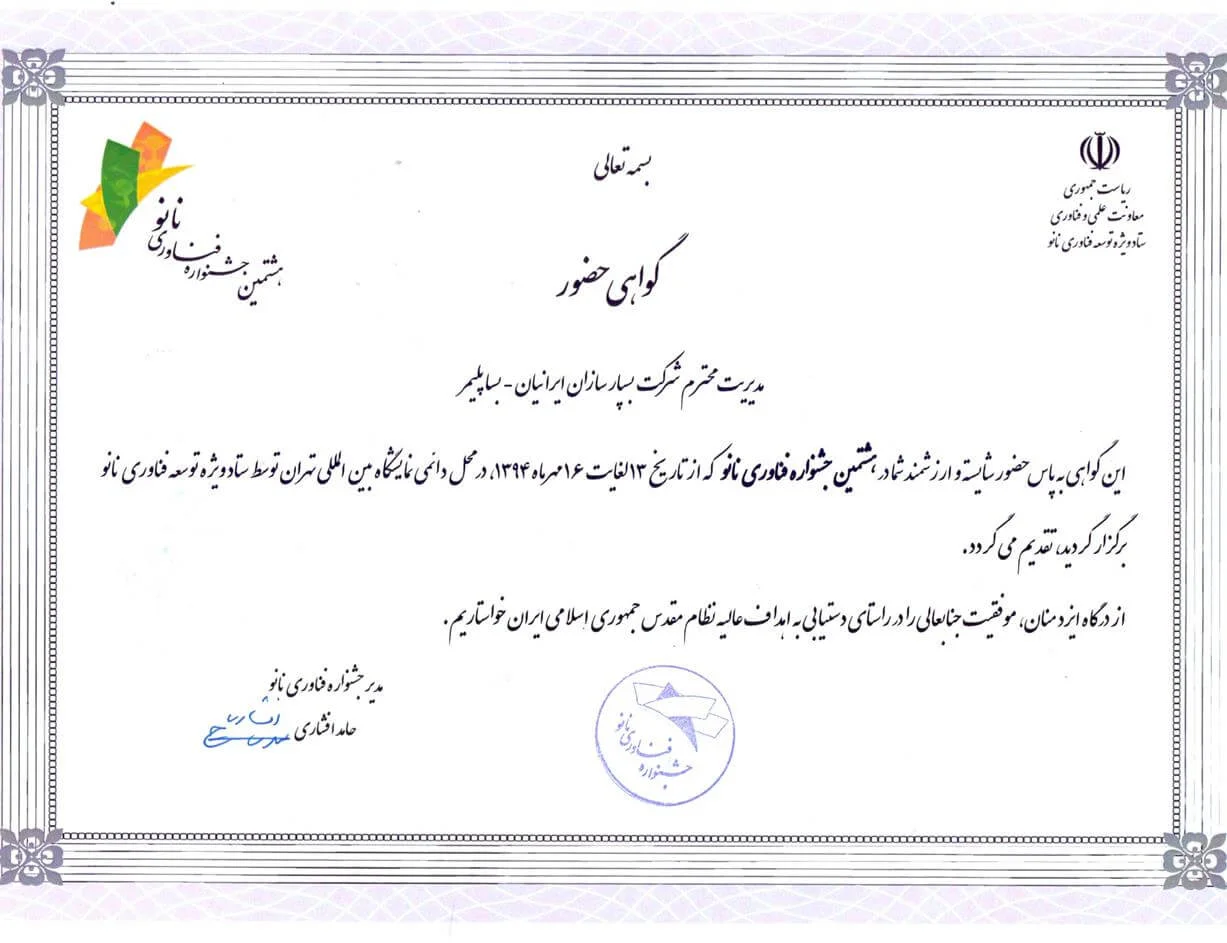 بسمه تعالی
ریاست جمهوری
معاونت علمی و فناوری
ستاد ویژه توسعه فناوری نانو
هشتمین جشنواره فناوری نانو
گواهی حضور
مدیریت محترم شرکت بسپار سازان ایرانیان - بساپلیمر
این گواهی به پاس حضور شایسته و ارزشمند شما در هشتمین جشنواره فناوری نانو که از تاریخ ۱۳ لغایت ۱۶ مهر ماه ۱۳۹۴، در محل دائمی نمایشگاه بین المللی تهران توسط ستاد ویژه توسعه فناوری نانو
برگزار گردید، تقدیم می گردد.
از درگاه ایزد منان، موفقیت جنابعالی را در راستای دستیابی به اهداف عالیه نظام مقدس جمهوری اسلامی ایران خواستاریم.
مدیر جشنواره فناوری نانو
حامد افشاری
جشنواره فناوری نانو